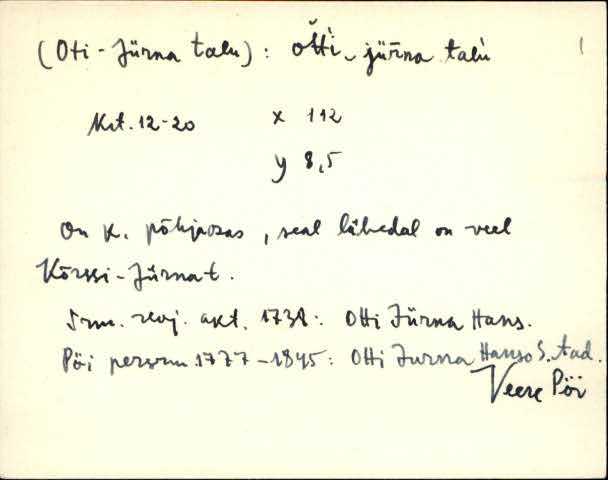 (Oti-Jürna talu): ŏtti‿jür̄na talù
Krt. 12-20 x 112
y 8,5
On k. põhjaosas, seal lähedal on veel
Kõrssi-Jürnat.
Srm. revj. akt. 1738: Otti Jürna Hans.
Pöi persrm. 1777-1845: Otti Jurna Hanso S. tad.
Veere Pöi